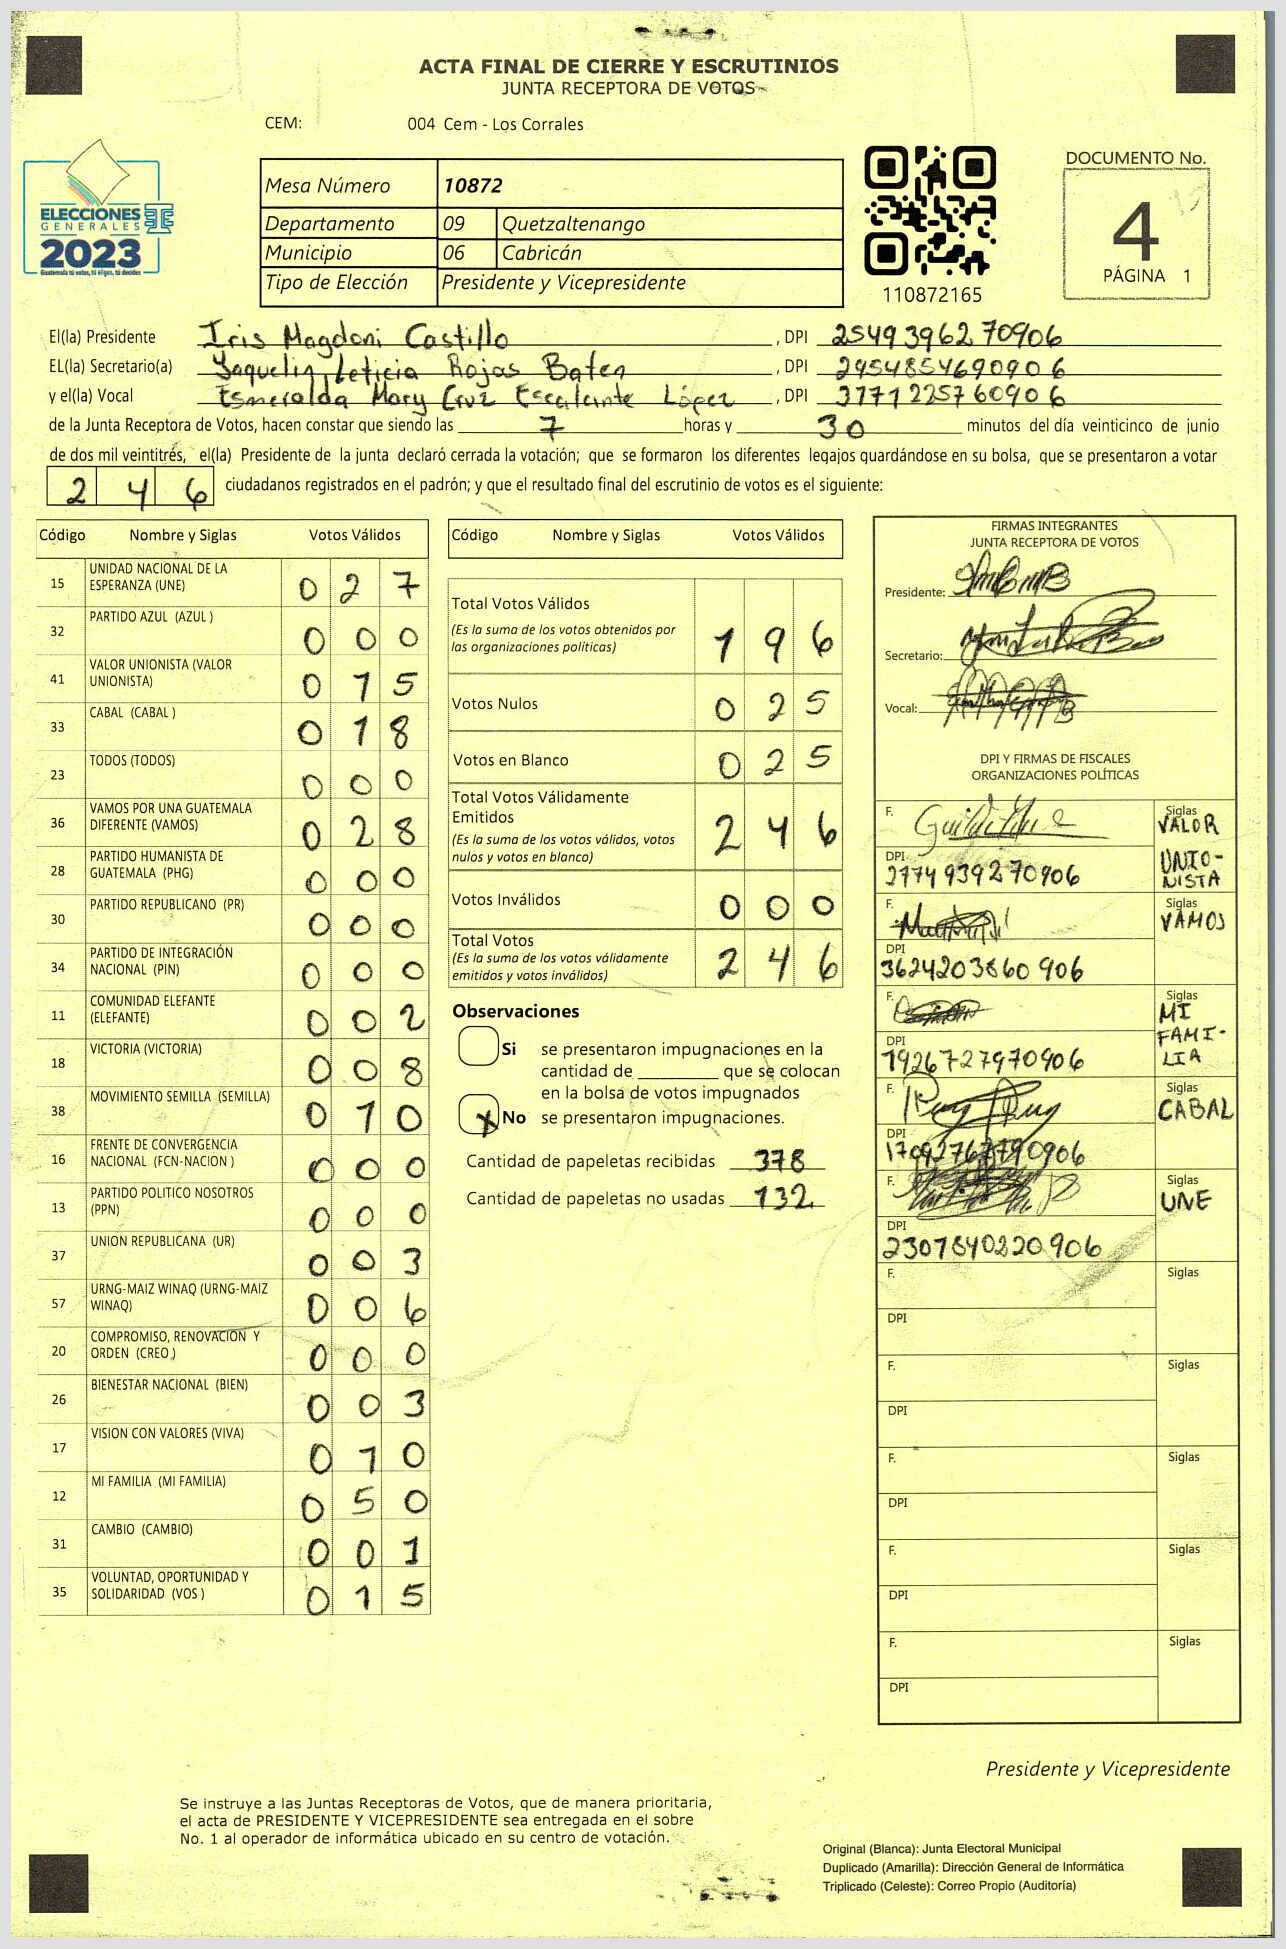 ACTA FINAL DE CIERRE Y ESCRUTINIOS
JUNTA RECEPTORA DE VOTOS
CEM: 004 Cem - Los Corrales
ELECCIONES
GENERALES
2023
Guatemala tú votas, tú eliges, tú decides
Mesa Número 10872
Departamento 09 Quetzaltenango
Municipio 06 Cabricán
Tipo de Elección Presidente y Vicepresidente
110872165
DOCUMENTO No.
4
PÁGINA 1
El(la) Presidente Iris Magdoni Castillo , DPI 2549396270906
EL(la) Secretario(a) Yaquelin Leticia Rojas Baten , DPI 2954854690906
y el(la) Vocal Esmeralda Mary Cruz Escalante López , DPI 3771225760906
de la Junta Receptora de Votos, hacen constar que siendo las 7 horas y 30 minutos del día veinticinco de junio
de dos mil veintitrés, el(la) Presidente de la junta declaró cerrada la votación; que se formaron los diferentes legajos guardándose en su bolsa, que se presentaron a votar
2 4 6 ciudadanos registrados en el padrón; y que el resultado final del escrutinio de votos es el siguiente:
Código Nombre y Siglas Votos Válidos
15 UNIDAD NACIONAL DE LA ESPERANZA (UNE) 0 2 7
32 PARTIDO AZUL (AZUL ) 0 0 0
41 VALOR UNIONISTA (VALOR UNIONISTA) 0 1 5
33 CABAL (CABAL ) 0 1 8
23 TODOS (TODOS) 0 0 0
36 VAMOS POR UNA GUATEMALA DIFERENTE (VAMOS) 0 2 8
28 PARTIDO HUMANISTA DE GUATEMALA (PHG) 0 0 0
30 PARTIDO REPUBLICANO (PR) 0 0 0
34 PARTIDO DE INTEGRACIÓN NACIONAL (PIN) 0 0 0
11 COMUNIDAD ELEFANTE (ELEFANTE) 0 0 2
18 VICTORIA (VICTORIA) 0 0 8
38 MOVIMIENTO SEMILLA (SEMILLA) 0 1 0
16 FRENTE DE CONVERGENCIA NACIONAL (FCN-NACION ) 0 0 0
13 PARTIDO POLITICO NOSOTROS (PPN) 0 0 0
37 UNION REPUBLICANA (UR) 0 0 3
57 URNG-MAIZ WINAQ (URNG-MAIZ WINAQ) 0 0 6
20 COMPROMISO, RENOVACION Y ORDEN (CREO ) 0 0 0
26 BIENESTAR NACIONAL (BIEN) 0 0 3
17 VISION CON VALORES (VIVA) 0 1 0
12 MI FAMILIA (MI FAMILIA) 0 5 0
31 CAMBIO (CAMBIO) 0 0 1
35 VOLUNTAD, OPORTUNIDAD Y SOLIDARIDAD (VOS ) 0 1 5
Código Nombre y Siglas Votos Válidos
Total Votos Válidos
(Es la suma de los votos obtenidos por
las organizaciones políticas) 1 9 6
Votos Nulos 0 2 5
Votos en Blanco 0 2 5
Total Votos Válidamente
Emitidos
(Es la suma de los votos válidos, votos
nulos y votos en blanco) 2 4 6
Votos Inválidos 0 0 0
Total Votos
(Es la suma de los votos válidamente
emitidos y votos inválidos) 2 4 6
Observaciones
Si se presentaron impugnaciones en la
cantidad de ________ que se colocan
en la bolsa de votos impugnados
X No se presentaron impugnaciones.
Cantidad de papeletas recibidas 378
Cantidad de papeletas no usadas 132
FIRMAS INTEGRANTES
JUNTA RECEPTORA DE VOTOS
Presidente:
Secretario:
Vocal:
DPI Y FIRMAS DE FISCALES
ORGANIZACIONES POLÍTICAS
F. Siglas VALOR
DPI UNIO-
2774939270906 NISTA
F. Siglas VAMOS
DPI
3624203860906
F. Siglas MI
DPI FAMI-
1926727970906 LIA
F. Siglas CABAL
DPI
F. Siglas UNE
DPI
2307840220906
F. Siglas
DPI
F. Siglas
DPI
F. Siglas
DPI
F. Siglas
DPI
F. Siglas
DPI
Presidente y Vicepresidente
Se instruye a las Juntas Receptoras de Votos, que de manera prioritaria,
el acta de PRESIDENTE Y VICEPRESIDENTE sea entregada en el sobre
No. 1 al operador de informática ubicado en su centro de votación.
Original (Blanca): Junta Electoral Municipal
Duplicado (Amarilla): Dirección General de Informática
Triplicado (Celeste): Correo Propio (Auditoría)